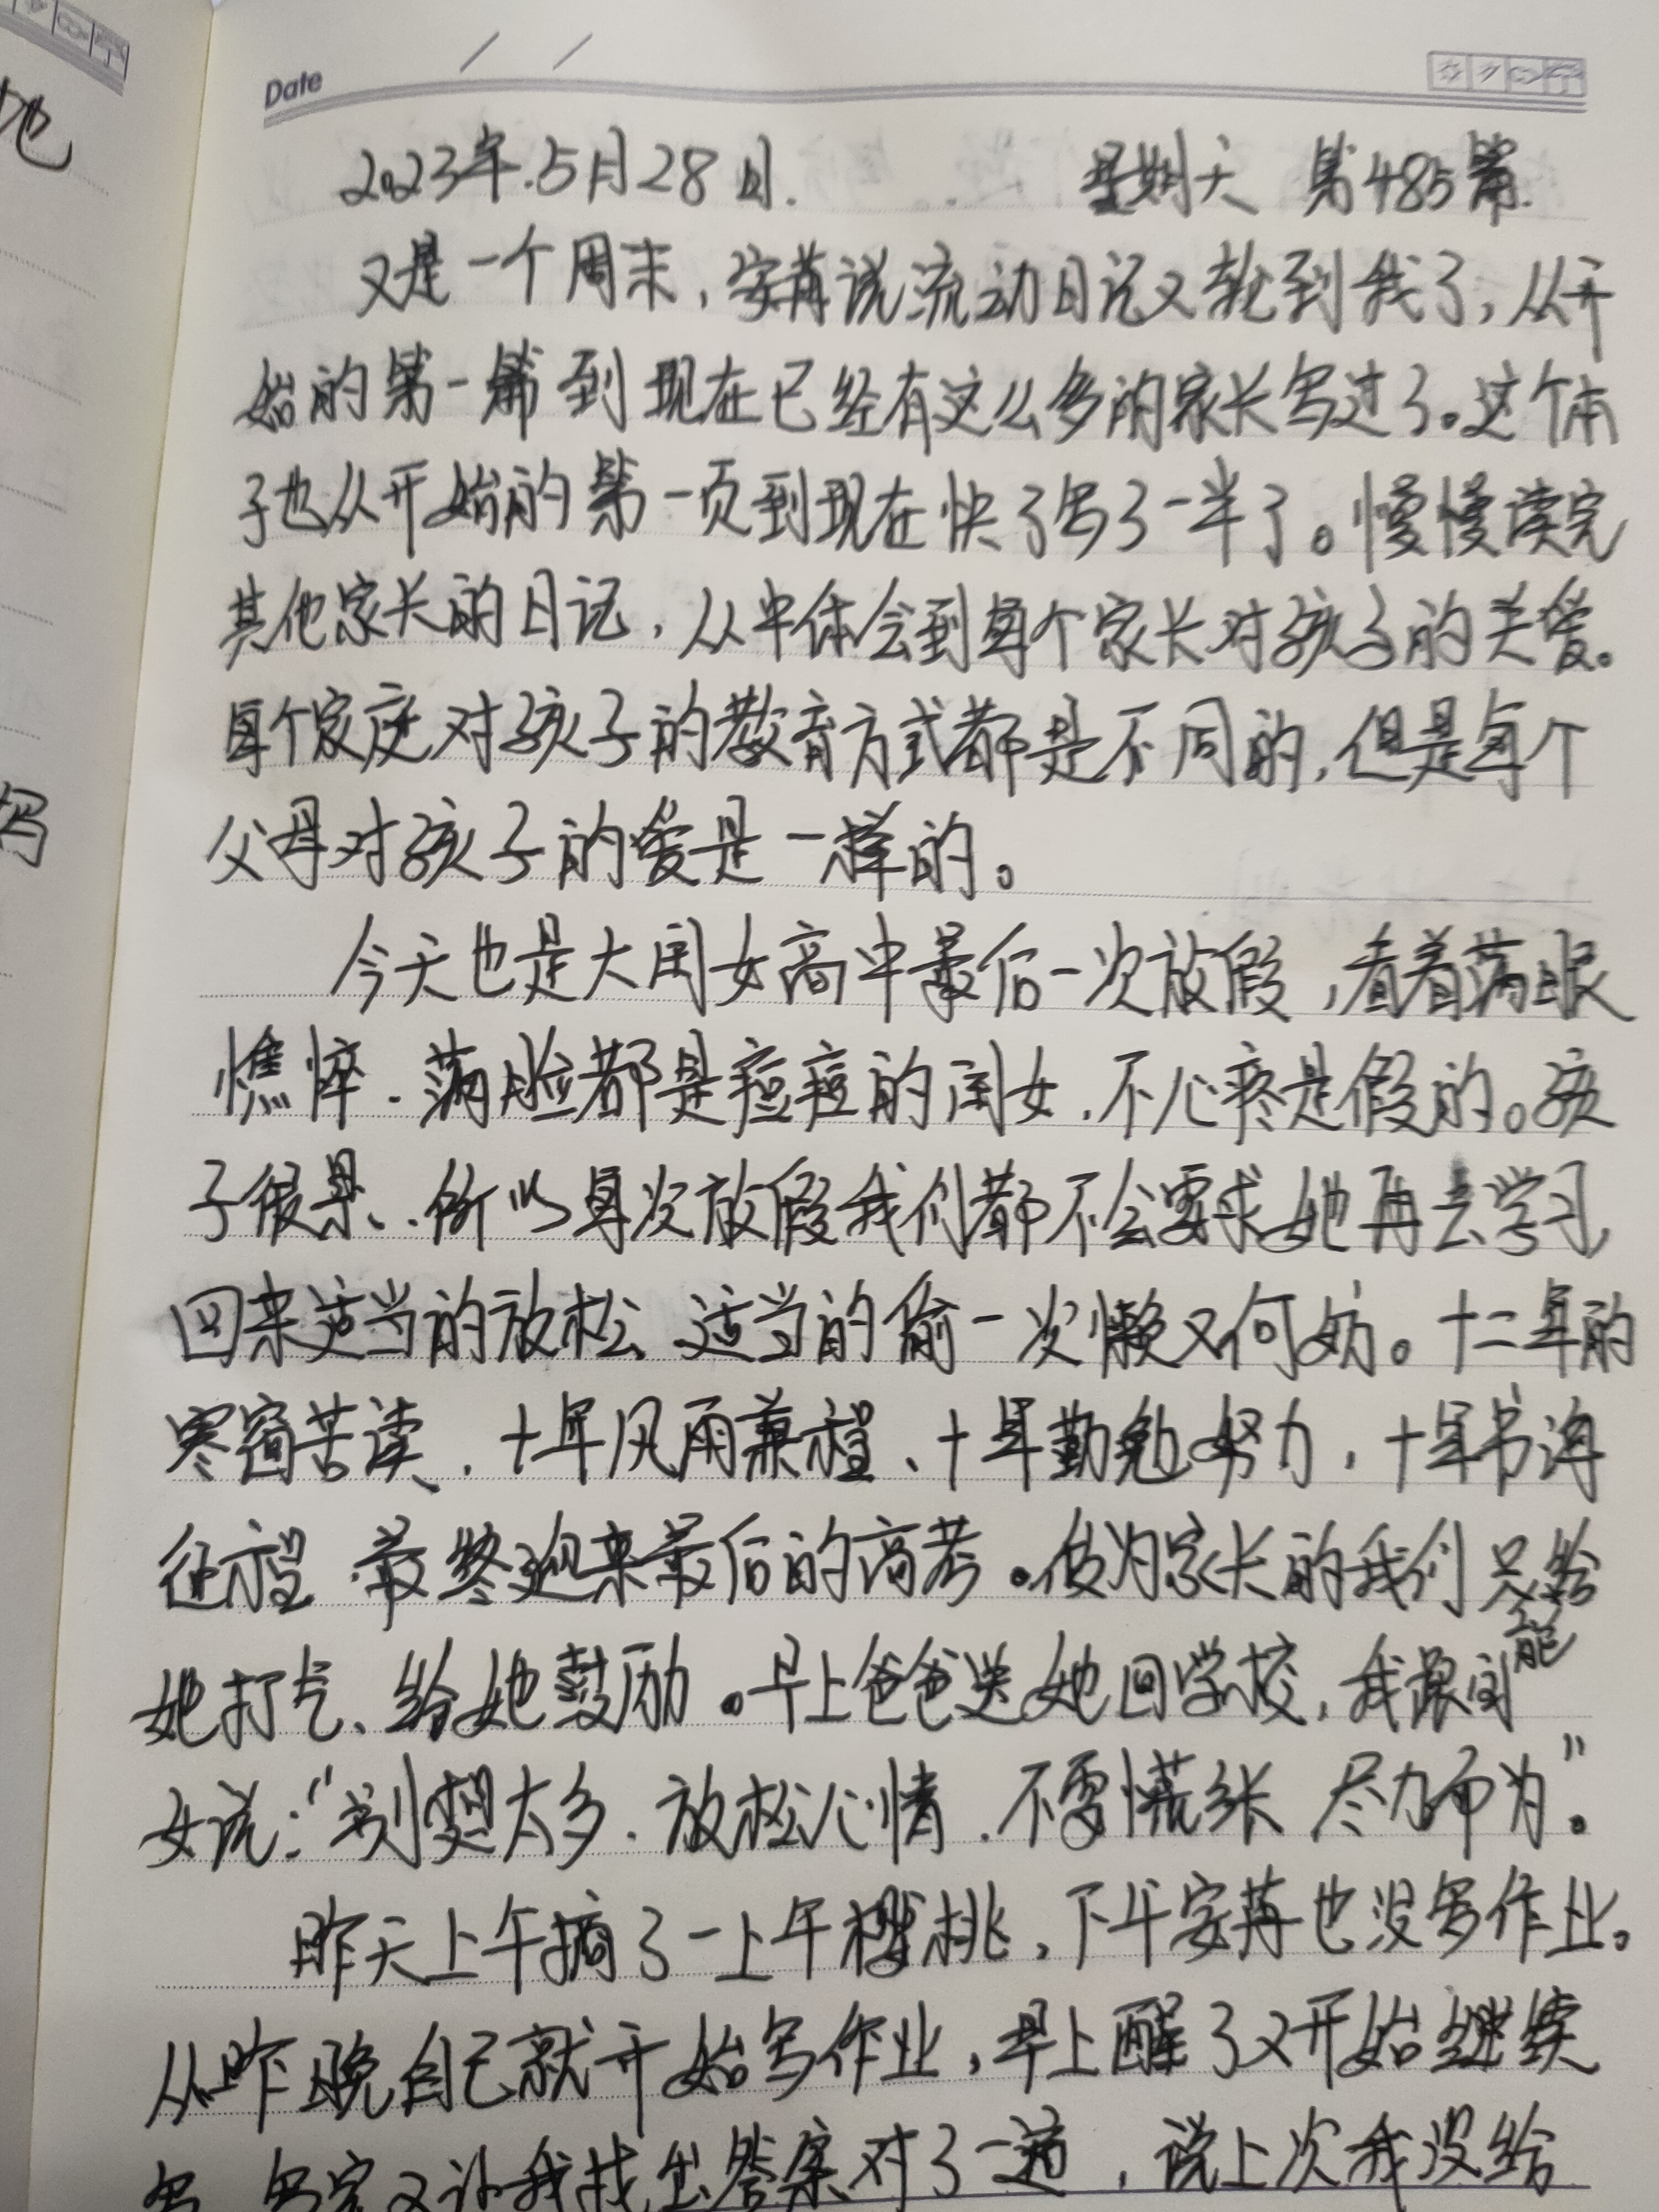 地
妈
Date / /
2023年.5月28日. 星期天 第485篇.
又是一个周末，安苒说流动日记又轮到我了，从开
始的第一篇到现在已经有这么多的家长写过了。这个本
子也从开始的第一页到现在快了写了一半了。慢慢读完
其他家长的日记，从中体会到每个家长对孩子的关爱。
每个家庭对孩子的教育方式都是不同的，但是每个
父母对孩子的爱是一样的。
今天也是大闺女高中最后一次放假，看着满眼
憔悴．满脸都是痘痘的闺女．不心疼是假的。孩
子很累、所以每次放假我们都不会要求她再去学习，
回来适当的放松、适当的偷一次懒又何妨。十二年的
寒窗苦读、十年风雨兼程、十年勤勉努力，十年书海
征程 最终迎来最后的高考。做为家长的我们只能给
她打气、给她鼓励。早上爸爸送她回学校，我跟闺
女说：“别想太多．放松心情．不要慌张 尽力而为”。
昨天上午摘了一上午樱桃，下午安苒也没写作业。
从昨晚自己就开始写作业，早上醒了又开始继续
写 写完又让我找出答案对了一遍，说上次我没给